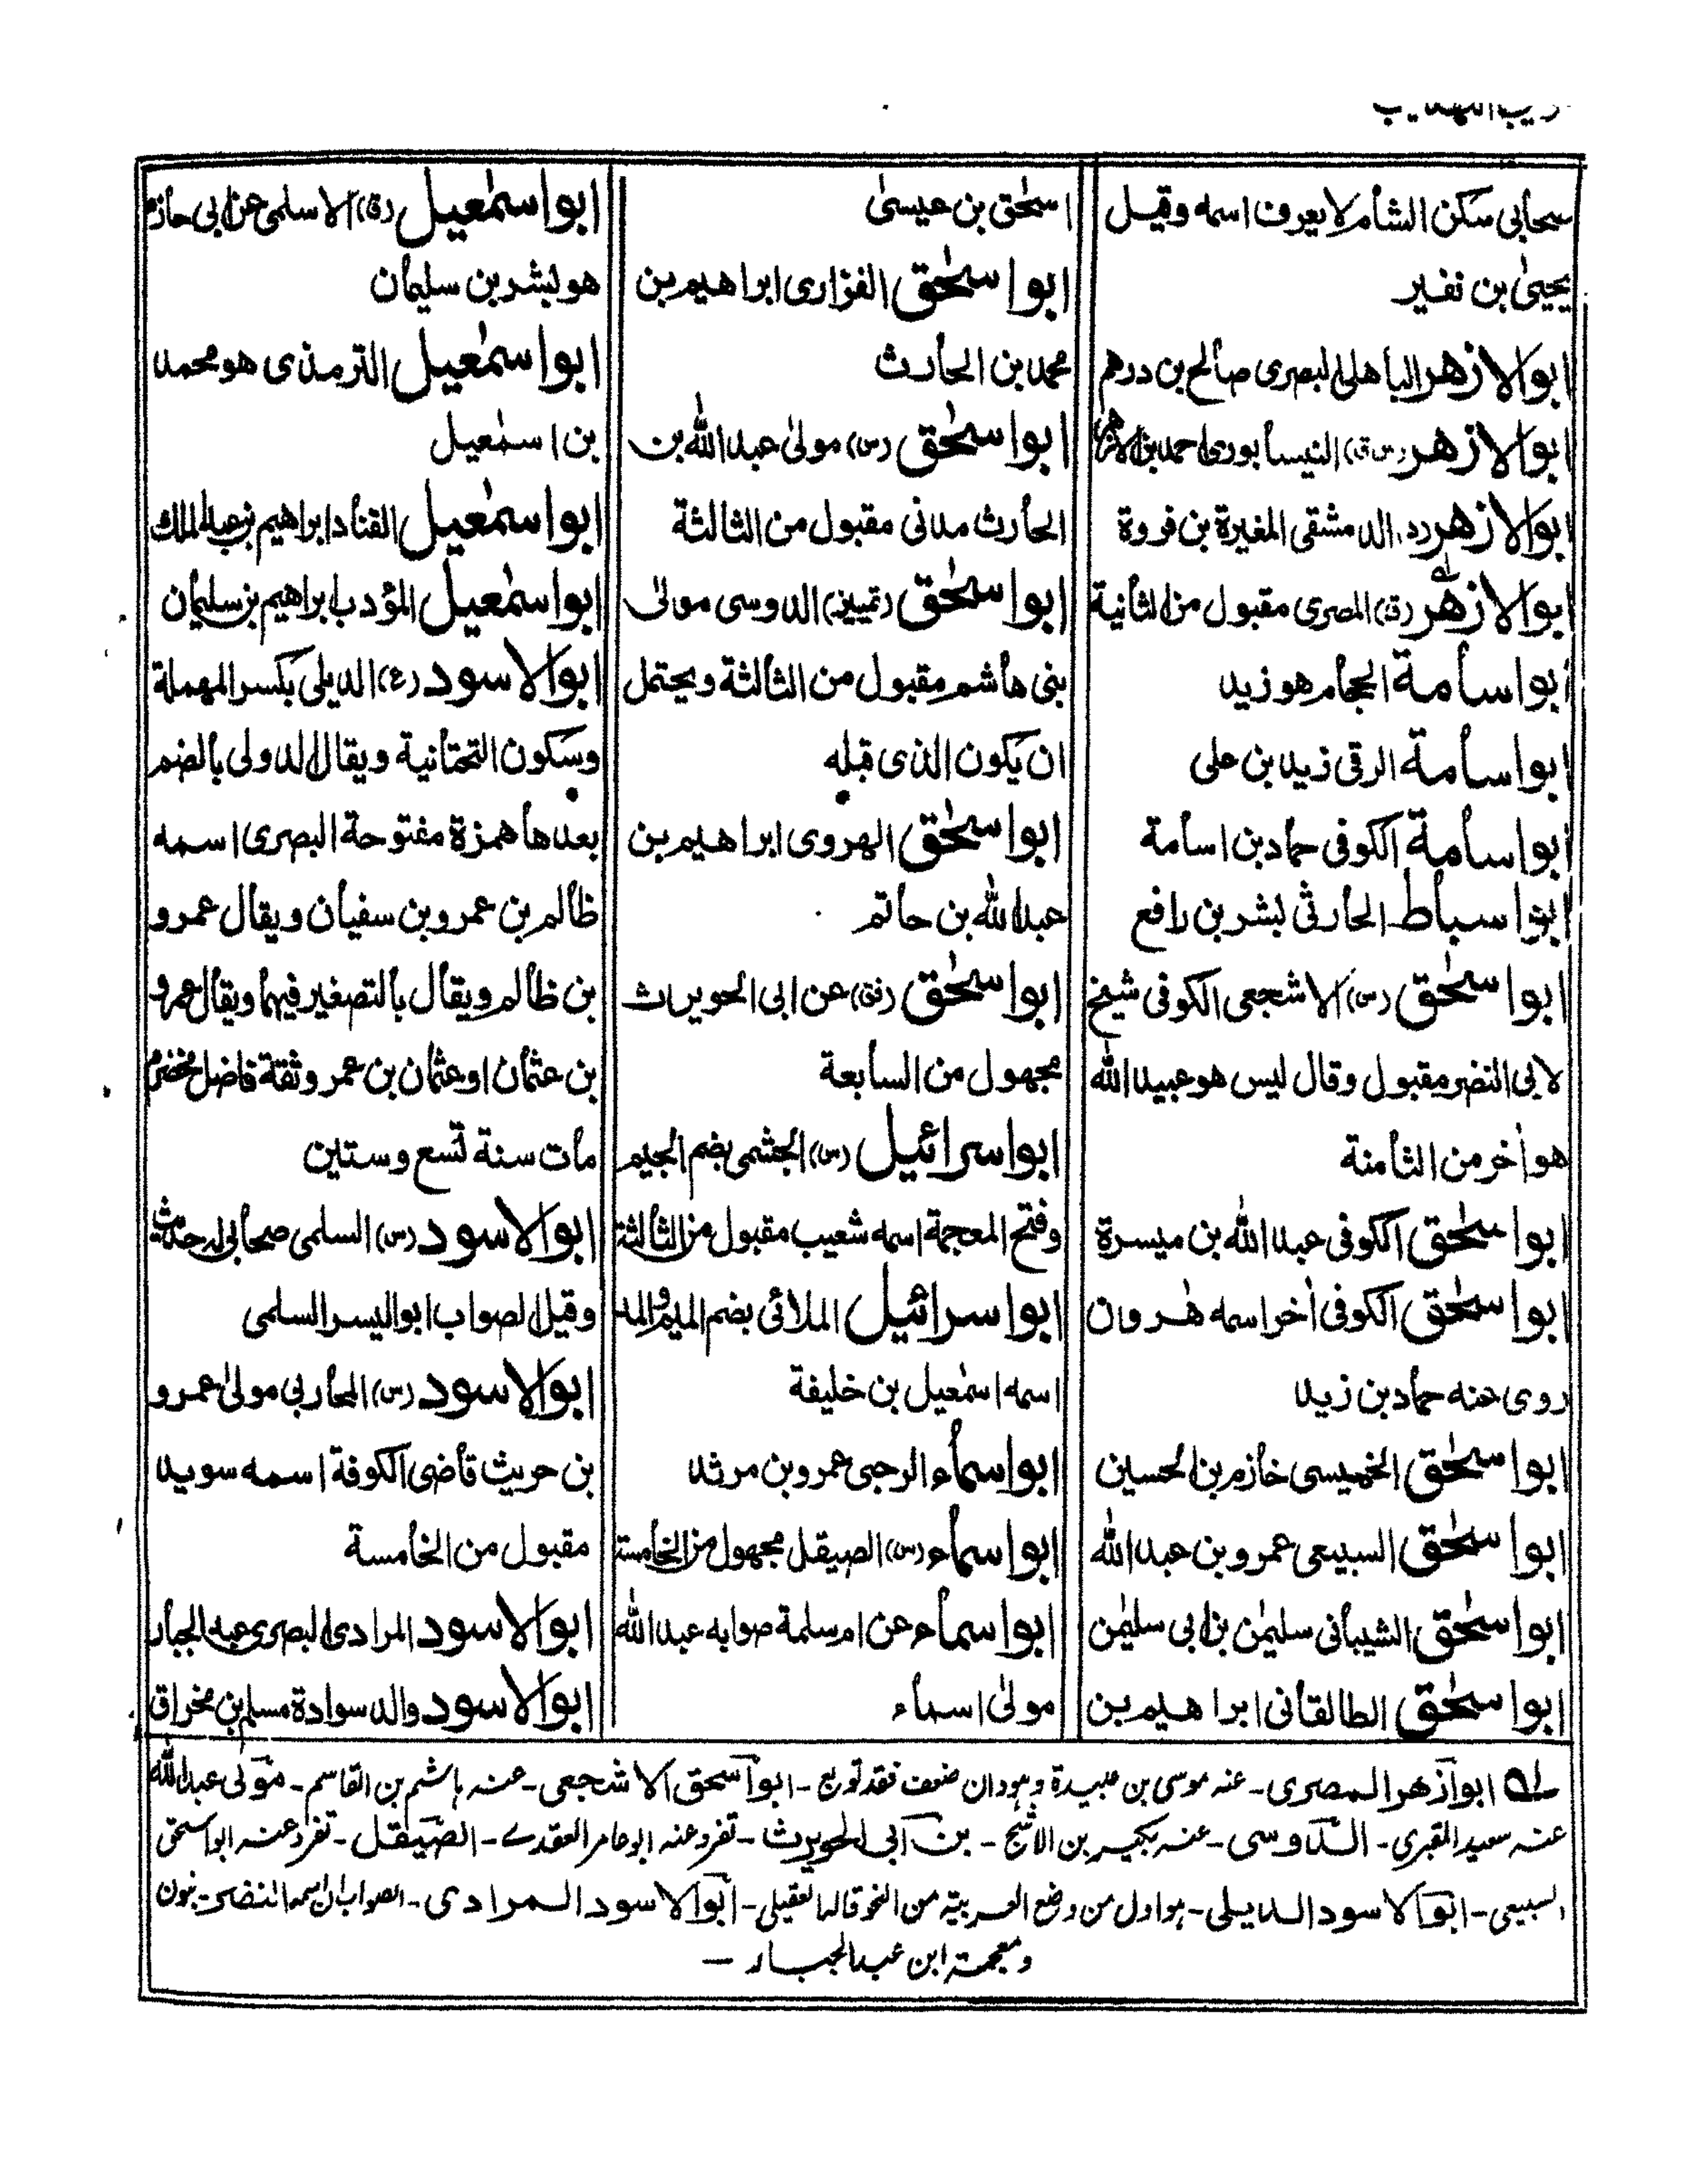 صحابي سكن الشام لا يعرف اسمه وقيل
يحيى بن نفير
ابو الازهر الباهلي البصرى صالح بن درهم
ابو الازهر (س ق) النيسابورى احمد بن الازهر
ابو الازهر (د) الدمشقى المغيرة بن فروة
ابو الازهر (ق) المصرى مقبول من الثانية
ابو اسامة الحجام هو زيد
ابو اسامة الرقى زيد بن على
ابو اسامة الكوفى حماد بن اسامة
ابو اسباط الحارثى بشر بن رافع
ابو اسحٰق (س) الاشجعى الكوفى شيخ
لابى النضر مقبول وقال ليس هو عبيد الله
هو أخر من الثامنة
ابو اسحٰق الكوفى عبد الله بن ميسرة
ابو اسحٰق الكوفى أخر اسمه هٰرون
روى عنه حماد بن زيد
ابو اسحٰق الخميسى خازم بن الحسين
ابو اسحٰق السبيعى عمرو بن عبد الله
ابو اسحٰق الشيبانى سليمٰن بن ابى سليمٰن
ابو اسحٰق الطالقانى ابراهيم بن
اسحٰق بن عيسىٰ
ابو اسحٰق الفزارى ابراهيم بن
محمد بن الحارث
ابو اسحٰق (س) مولىٰ عبد الله بن
الحارث مدنى مقبول من الثالثة
ابو اسحٰق (تمييز) الدوسى مولىٰ
بنى هاشم مقبول من الثالثة ويحتمل
ان يكون الذى قبله
ابو اسحٰق الهروى ابراهيم بن
عبد الله بن حاتم
ابو اسحٰق (فق) عن ابى الحويرث
مجهول من السابعة
ابو اسرائيل (س) الجشمى بضم الجيم
وفتح المعجمة اسمه شعيب مقبول من الثالثة
ابو اسرائيل الملائى بضم الميم والمد
اسمه اسمٰعيل بن خليفة
ابو اسماء الرحبى عمرو بن مرثد
ابو اسماء (س) الصيقل مجهول من الخامسة
ابو اسماء عن ام سلمة صوابه عبد الله
مولىٰ اسماء
ابو اسمٰعيل (ق) الاسلمى عن ابى حازم
هو بشر بن سليمان
ابو اسمٰعيل الترمذى هو محمد
بن اسمٰعيل
ابو اسمٰعيل القناد ابراهيم بن عبد الملك
ابو اسمٰعيل المؤدب ابراهيم بن سليمان
ابو الاسود (ع) الديلى بكسر المهملة
وسكون التحتانية ويقال الدولى بالضم
بعدها همزة مفتوحة البصرى اسمه
ظالم بن عمرو بن سفيان ويقال عمرو
بن ظالم ويقال بالتصغير فيهما ويقال عمرو
بن عثمان او عثمان بن عمر وثقة فاضل مخضرم
مات سنة تسع وستين
ابو الاسود (س) السلمى صحابى له حديث
وقيل الصواب ابو اليسر السلمى
ابو الاسود (س) المحاربى مولىٰ عمرو
بن حريث قاضى الكوفة اسمه سويد
مقبول من الخامسة
ابو الاسود المرادى البصرى عبد الجبار
ابو الاسود والد سوادة مسلم بن مخراق
له ابو ازهر المصرى - عنه موسى بن عبيدة وهو وان ضعف فقد توبع - ابو اسحق الاشجعى - عنه هاشم بن القاسم - مولى عبد الله
عنه سعيد المقبرى - الدوسى - عنه بكير بن الاشج - بن ابى الحويرث - تفرد عنه ابو عامر العقدے - الصيقل - تفرد عنه ابو اسحق
السبيعى - ابو الاسود الديلى - هو اول من وضع العربية من النحو قاله العقيلى - ابو الاسود المرادى - الصواب ان اسمه النضر بنون
ومعجمة ابن عبد الجبار -